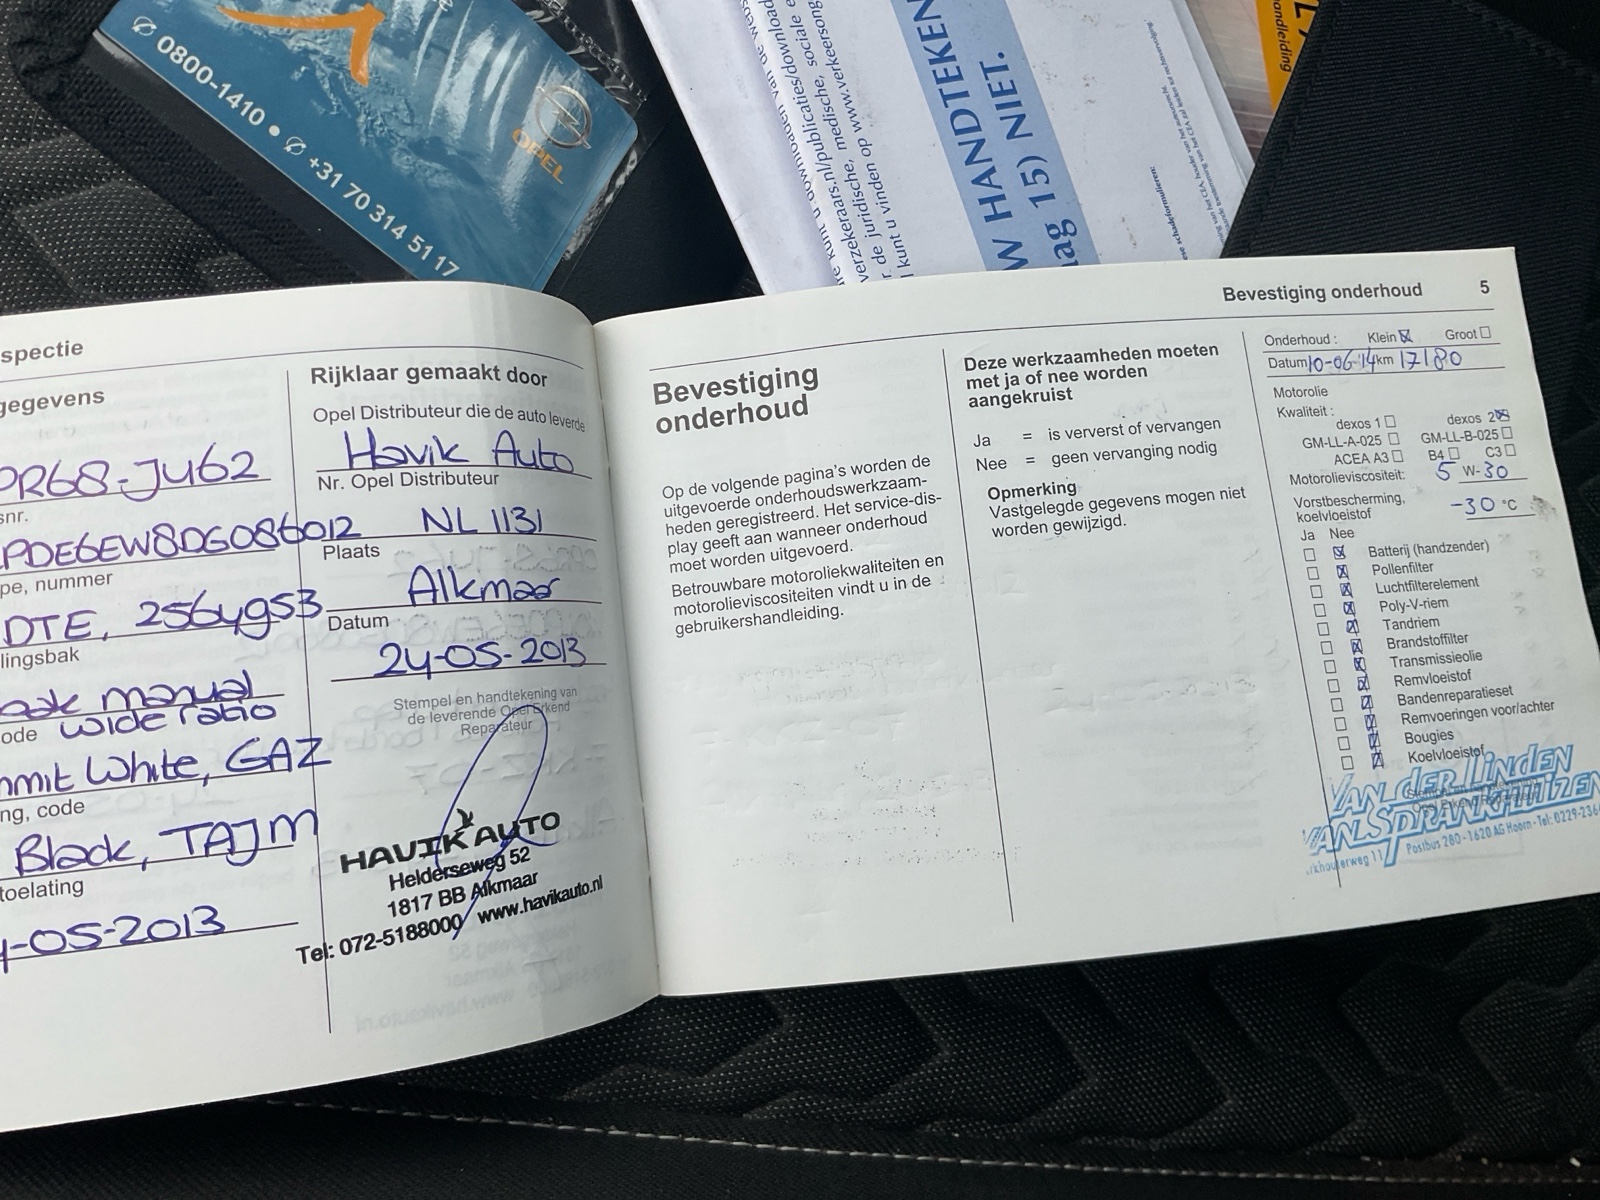 ✆ 0800-1410 • ✆ +31 70 314 51 17
OPEL
W HANDTEKEN
ag 15) NIET.
kunt u downloaden van de
verzekeraars.nl/publicaties/download
medische, sociale
de juridische,
kunt u vinden op www.verkeersong
andleiding
spectie
gegevens
PR68-JU62
snr.
PDE6EW8DG086012
pe, nummer
DTE, 2564953
lingsbak
manual
wide ratio
ode
mmit White, GAZ
ng, code
Black, TAJM
toelating
-05-2013
Rijklaar gemaakt door
Opel Distributeur die de auto leverde
Havik Auto
Nr. Opel Distributeur
NL 1131
Plaats
Alkmaar
Datum
24-05-2013
Stempel en handtekening van
de leverende Opel Erkend
Reparateur
HAVIK AUTO
Helderseweg 52
1817 BB Alkmaar
Tel: 072-5188000 www.havikauto.nl
Bevestiging onderhoud 5
Bevestiging
onderhoud
Op de volgende pagina's worden de
uitgevoerde onderhoudswerkzaam-
heden geregistreerd. Het service-dis-
play geeft aan wanneer onderhoud
moet worden uitgevoerd.
Betrouwbare motoroliekwaliteiten en
motorolieviscositeiten vindt u in de
gebruikershandleiding.
Deze werkzaamheden moeten
met ja of nee worden
aangekruist
Ja = is ververst of vervangen
Nee = geen vervanging nodig
Opmerking
Vastgelegde gegevens mogen niet
worden gewijzigd.
Onderhoud : Klein ☒ Groot ☐
Datum 10-06-'14 km 17180
Motorolie
Kwaliteit :
dexos 1 ☐ dexos 2 ☒
GM-LL-A-025 ☐ GM-LL-B-025 ☐
ACEA A3 ☐ B4 ☐ C3 ☐
Motorolieviscositeit: 5 W-30
Vorstbescherming,
koelvloeistof -30 °C
Ja Nee
☐ ☒ Batterij (handzender)
☐ ☒ Pollenfilter
☐ ☒ Luchtfilterelement
☐ ☒ Poly-V-riem
☐ ☒ Tandriem
☐ ☒ Brandstoffilter
☐ ☒ Transmissieolie
☐ ☒ Remvloeistof
☐ ☒ Bandenreparatieset
☐ ☒ Remvoeringen voor/achter
☐ ☒ Bougies
☐ ☒ Koelvloeistof
Stempel en handtekening
Opel Erkend Reparateur
VAN DER LINDEN
VAN SPRANKHUIZEN
rkhouterweg 11 Postbus 280 - 1620 AG Hoorn - Tel: 0229-236